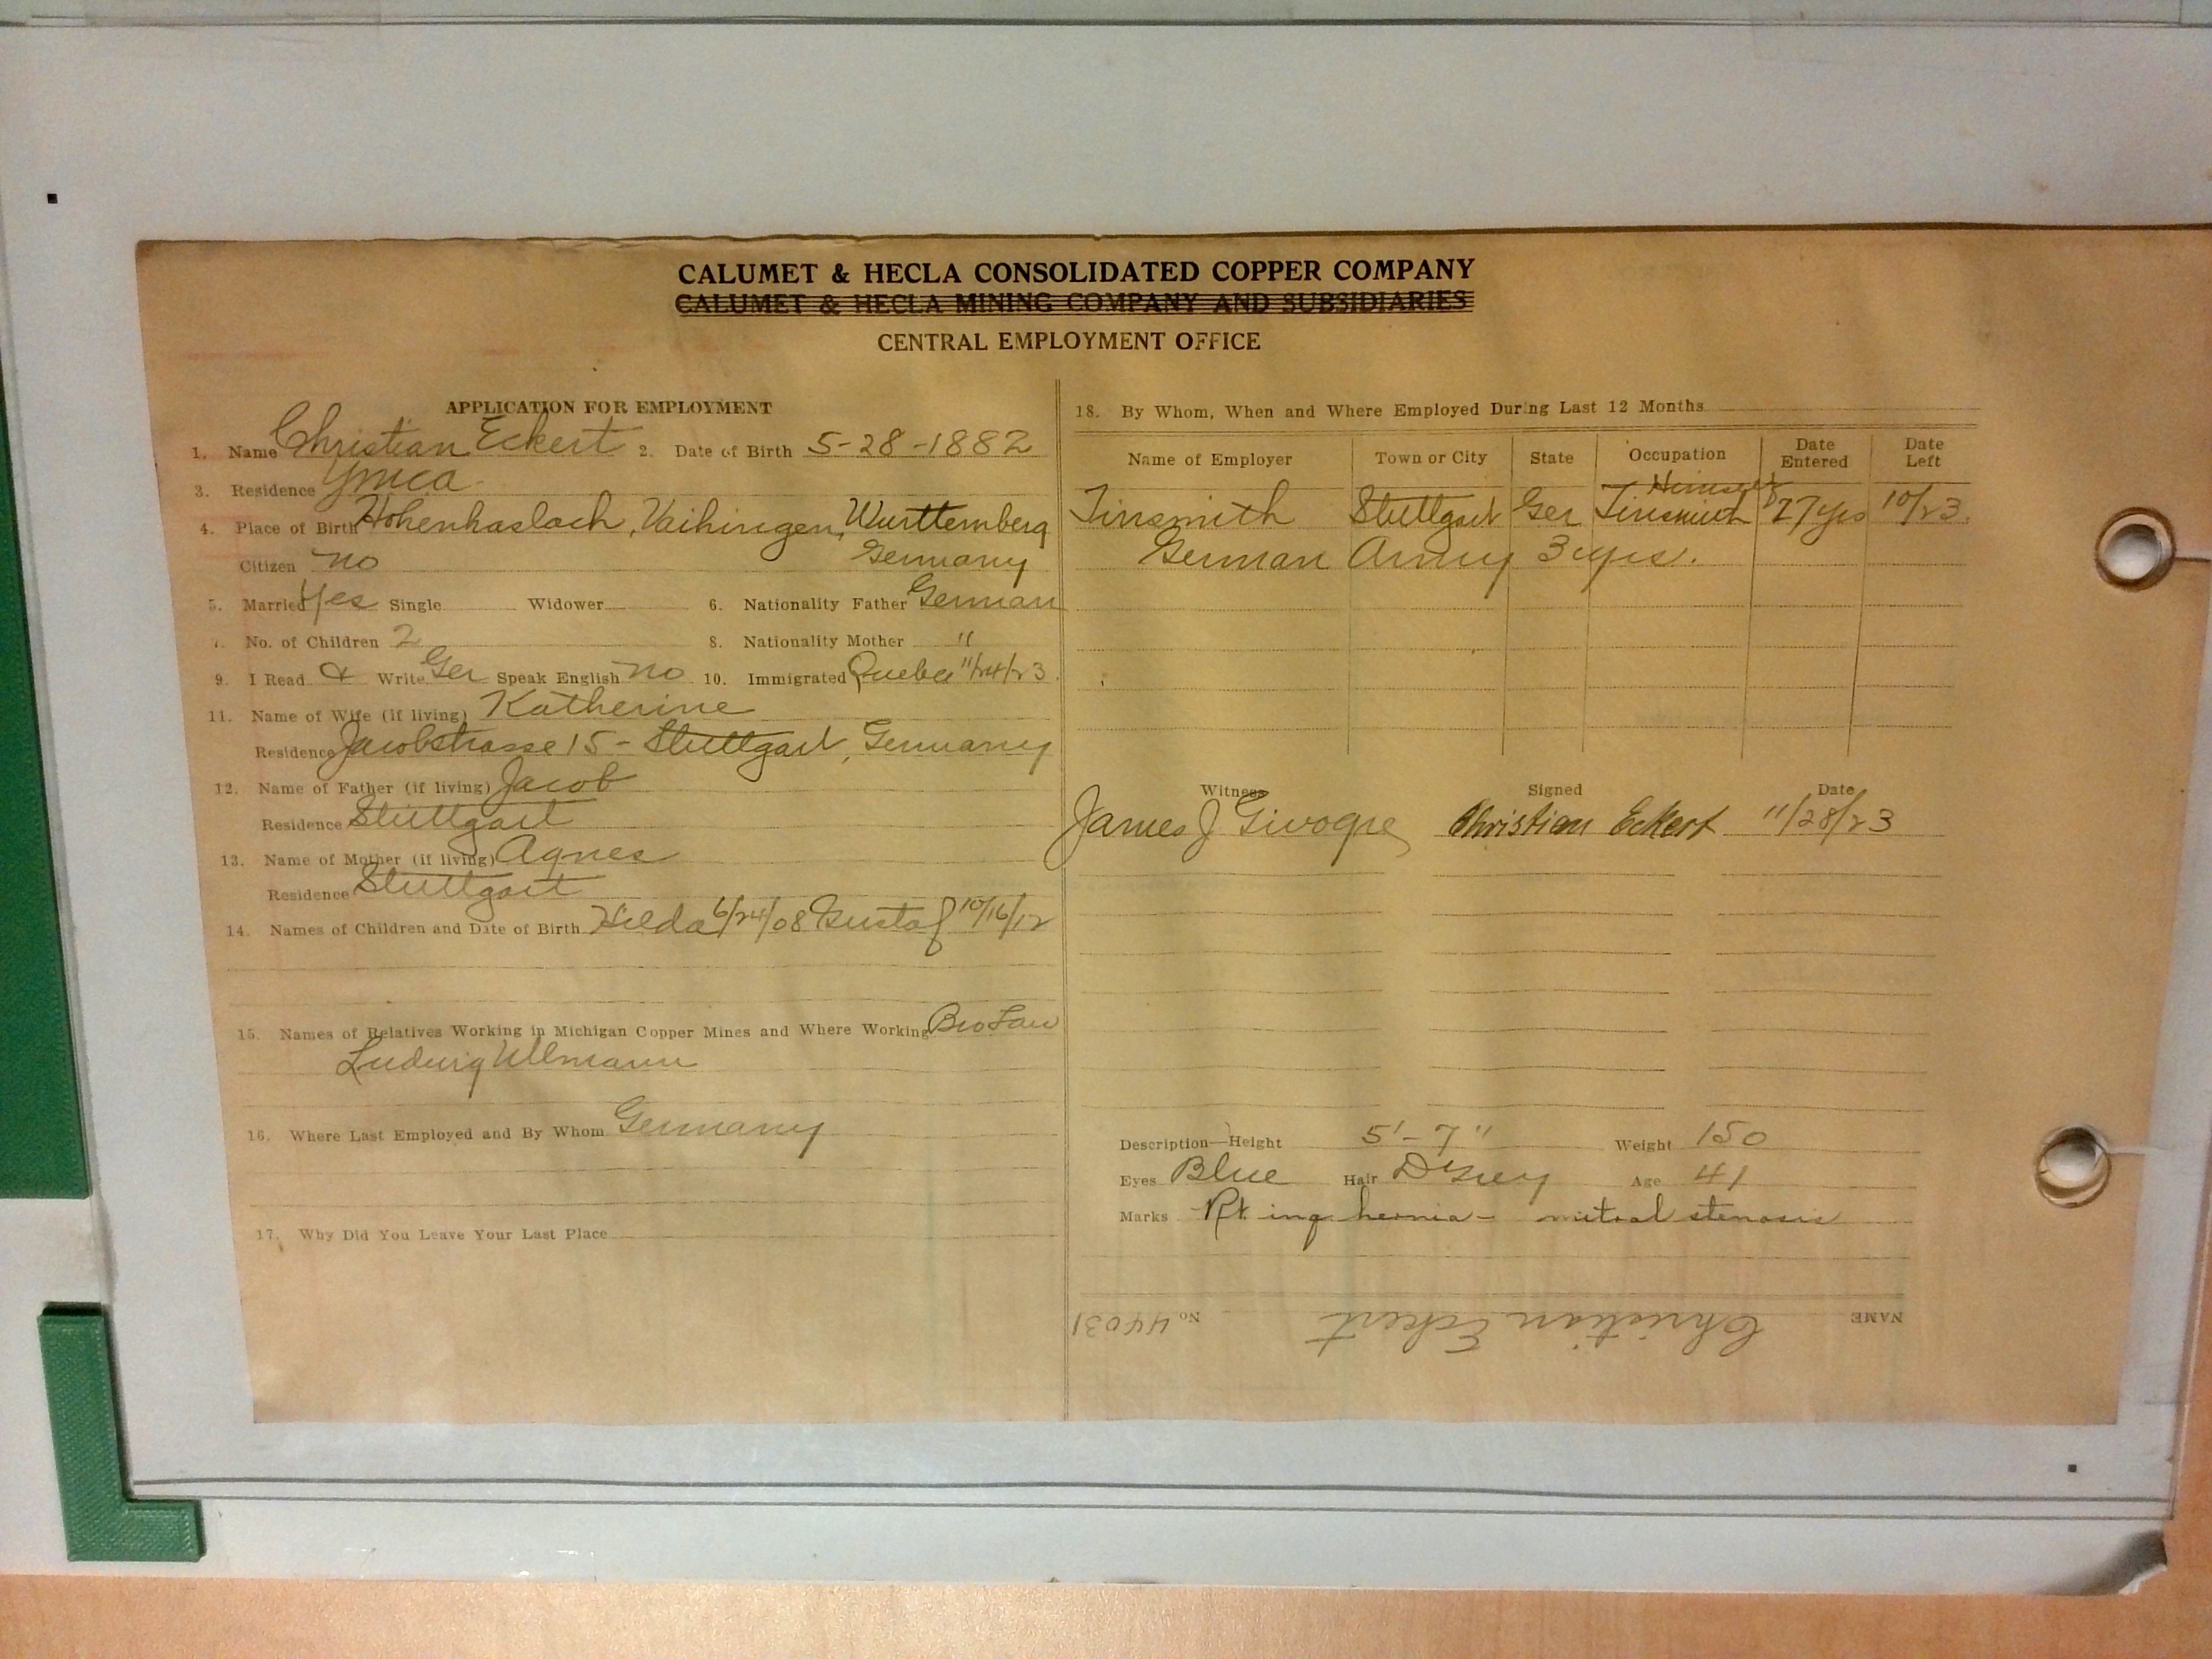 CALUMET & HECLA CONSOLIDATED COPPER COMPANY
CALUMET & HECLA MINING COMPANY AND SUBSIDIARIES
CENTRAL EMPLOYMENT OFFICE
APPLICATION FOR EMPLOYMENT
1. Name Christian Eckert 2. Date of Birth 5-28-1882
3. Residence YMCA
4. Place of Birth Hohenhaslach, Vaihingen, Wurttemberg
Citizen no Germany
5. Married Yes Single Widower 6. Nationality Father German
7. No. of Children 2 8. Nationality Mother "
9. I Read & Write Ger Speak English no 10. Immigrated Quebec 11/24/23
11. Name of Wife (if living) Katherine
Residence Jacobstrasse 15 - Stuttgart, Germany
12. Name of Father (if living) Jacob
Residence Stuttgart
13. Name of Mother (if living) Agnes
Residence Stuttgart
14. Names of Children and Date of Birth Hilda 6/24/08 Gustaf 10/16/12
15. Names of Relatives Working in Michigan Copper Mines and Where Working Bro Law
Ludwig Ullmann
16. Where Last Employed and By Whom Germany
17. Why Did You Leave Your Last Place
18. By Whom, When and Where Employed During Last 12 Months
Name of Employer Town or City State Occupation Date Entered Date Left
Tinsmith Stuttgart Ger Tinsmith 27 yrs 10/23
German Army 3 yrs.
Witness Signed Date
James J Givogre Christian Eckert 11/28/23
Description—Height 5'-7" Weight 150
Eyes Blue Hair D Grey Age 41
Marks Rt. ing. hernia - mitral stenosis
NAME Christian Eckert No 44031